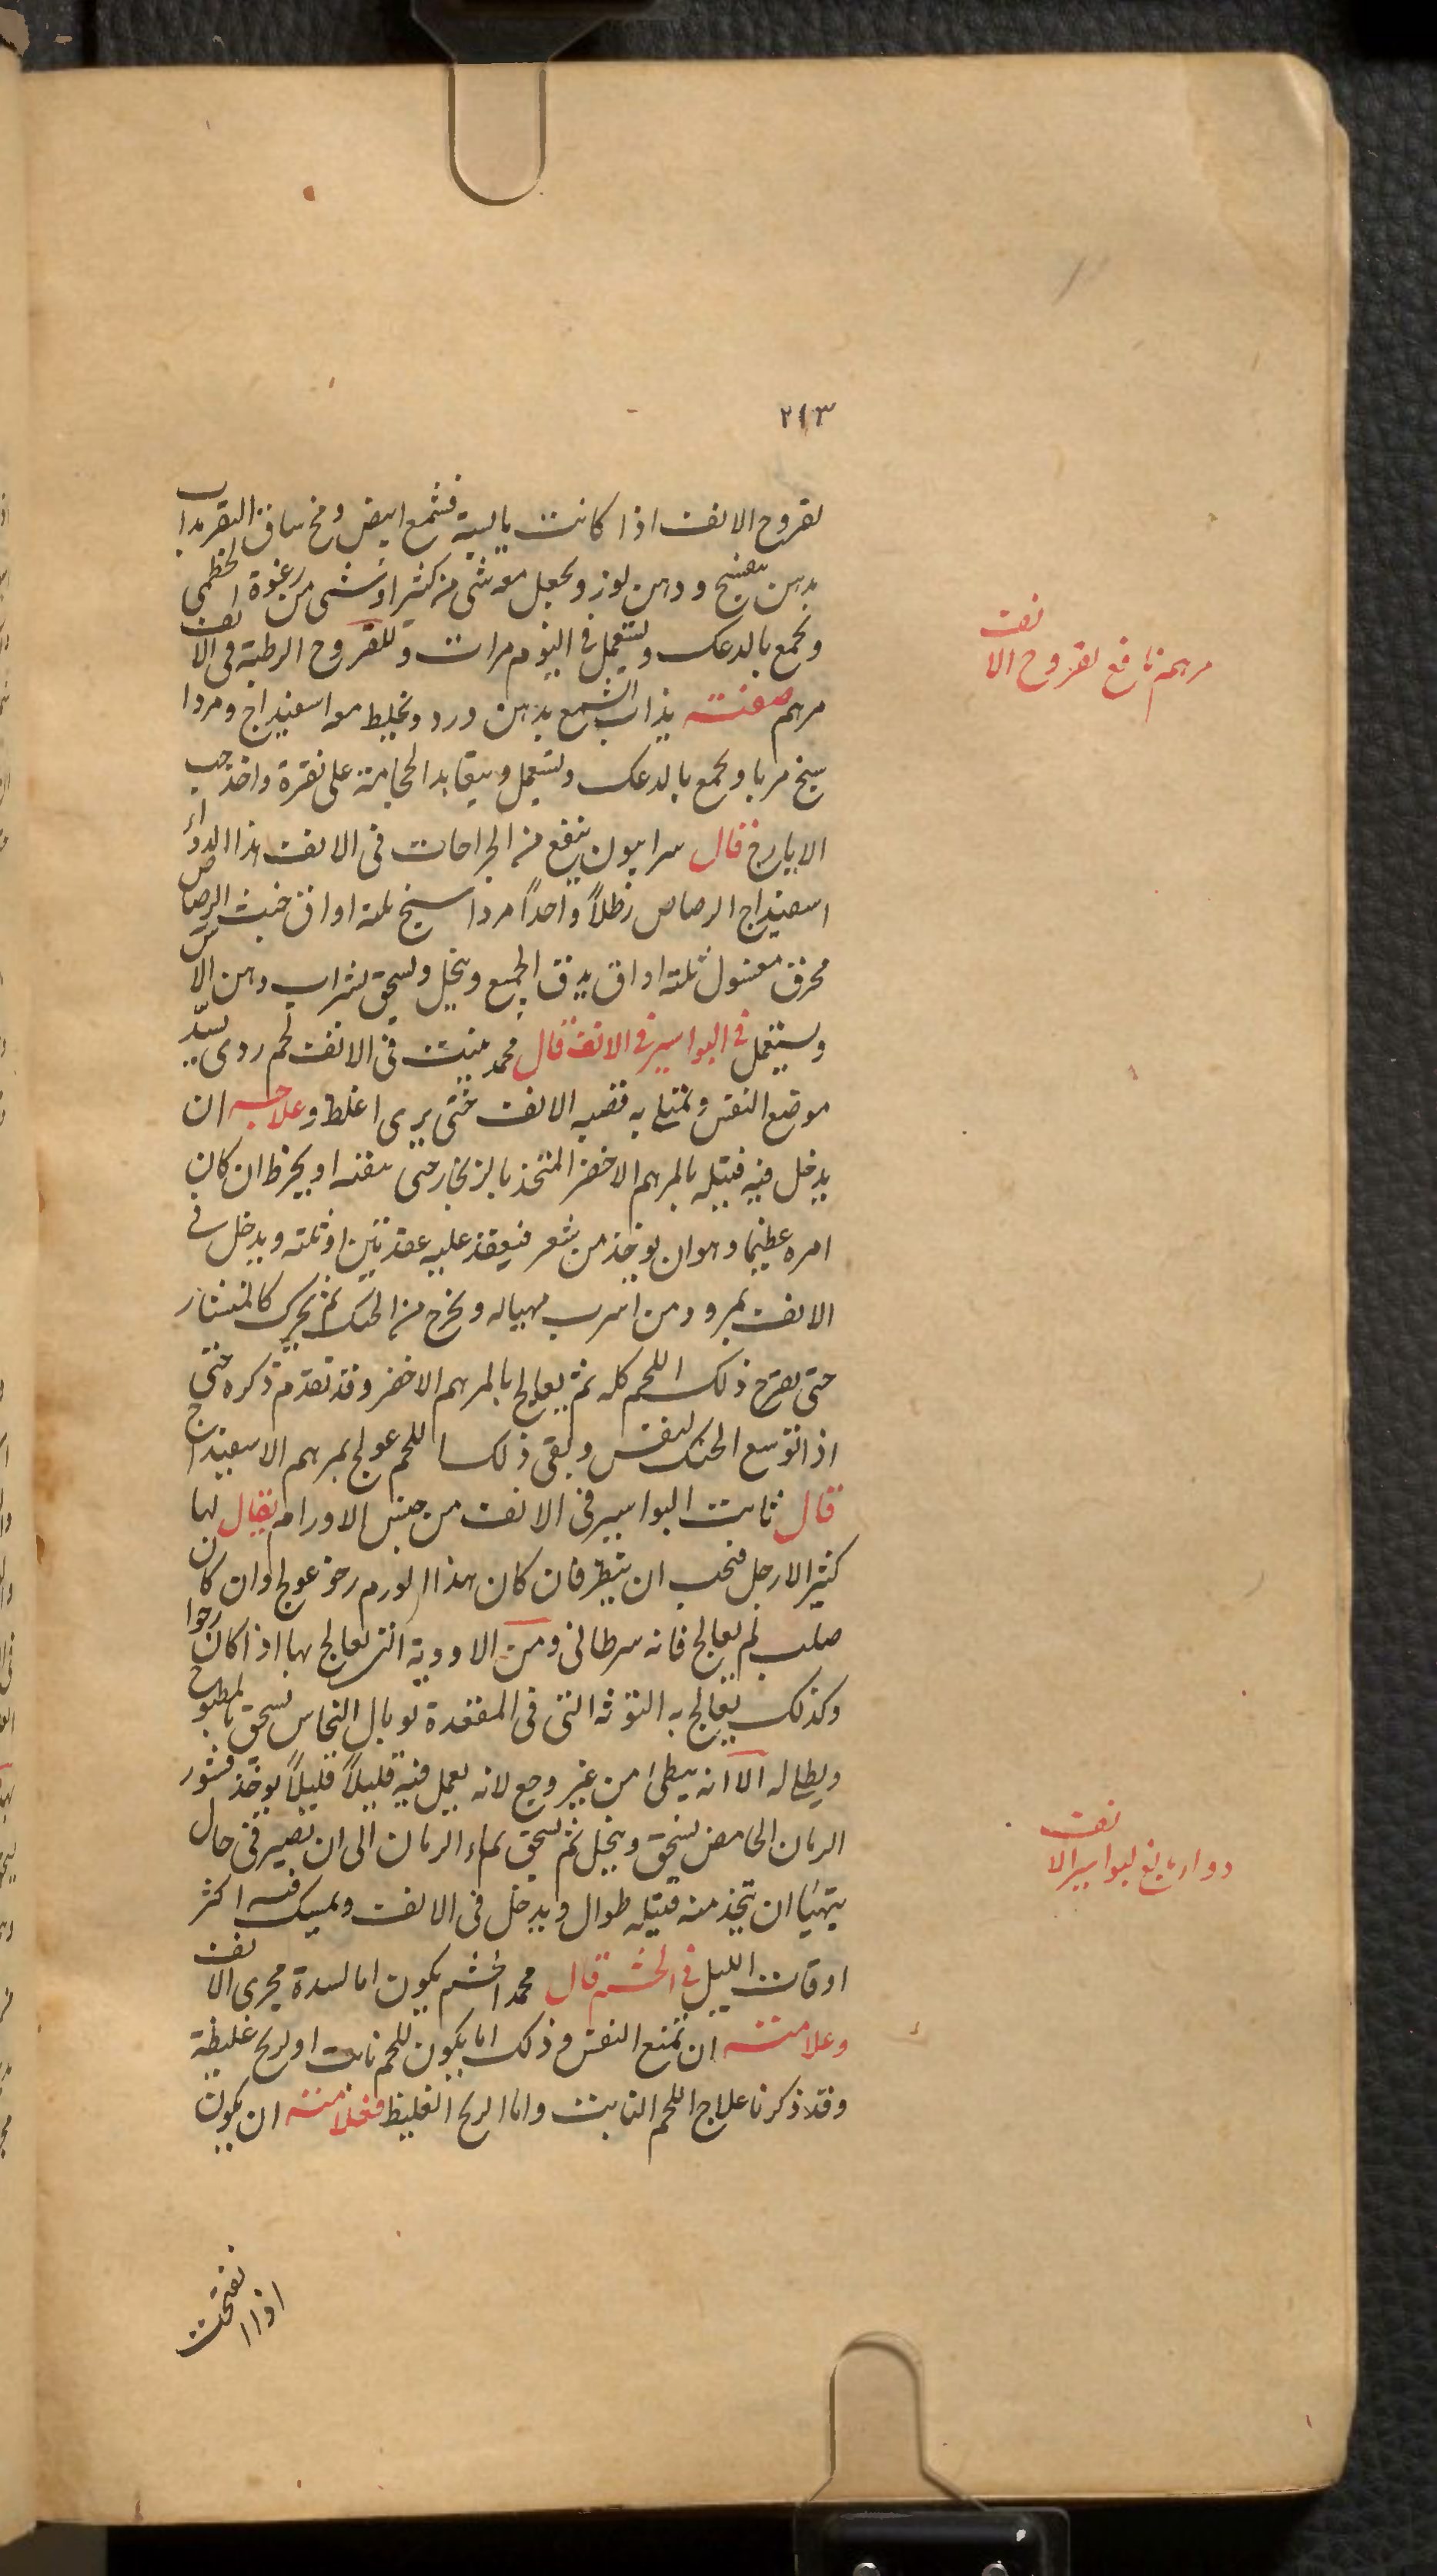 ٢١٣
لقروح الانف اذا كانت يابسة فشمع ابيض ومخ ساق البقر يداب
بدهن بنفسج ودهن لوز ويجعل معه شى من كثيرا وشى من رغوة الخطمى
ويجمع بالدعك ويستعمل فى اليوم مرات وللقروح الرطبة فى الانف
مرهم صفته يذاب الشمع بدهن ورد ويخلط معه اسفيداج ومردا
سنج مربا ويجمع بالدعك ويستعمل ويتعاهد الحجامة على نقرة واخذ حب
الايارج قال سرابيون ينفع من الجراحات فى الانف هذا الدواء
اسفيداج الرصاص رطلاً واحداً مرداسنج ثلثة اواق خبث الرصاص
محرق مغسول ثلثة اواق يدق الجميع وينخل ويسحق بشراب ودهن الاس
ويستعمل فى البواسير فى الانف قال محمد ينبت فى الانف لحم ردى يسدّ
موضع النفس وتمتلى به قصبه الانف حتى يرى اغلظ وعلاجه ان
يدخل فيه فتيله بالمرهم الاخضر المتخذ بالزنجار حتى ينقيه او يخرط ان كان
امره عظيما وهوان يوخذ من شعر فيعقد عليه عقدتين او ثلثه ويدخل فى
الانف بمرود من اسرب مهياله ويخرج من الحنك ثم يحرك كالمنشار
حتى يقرح ذلك اللحم كله ثم يعالج بالمرهم الاخضر وقد تقدم ذكره حتى
اذا توسع الحنك لنفس وبقى ذلك اللحم عولج بمرهم الاسفيداج
قال ثابت البواسير فى الانف من جنس الاورام يقال لها
كثير الارجل فيجب ان ينظر فان كان هذا الورم رخو عولج وان كان
صلب لم يعالج فانه سرطانى ومن الادوية التى يعالج بها اذا كان رخوا
وكذلك يعالج به التوثه التى فى المقعدة توبال النحاس يسحق بالمطبوخ
ويطلى له الا انه يبطى من غير وجع لانه يعمل فيه قليلاً قليلاً يوخذ قشور
الرمان الحامض يسحق وينخل ثم يسحق بماء الرمان الى ان يصير فى حال
يتهيا ان يتخذ منه فتيله طوال ويدخل فى الانف ويمسك فيه اكثر
اوقات الليل فى الخشم قال محمد الخشم يكون اما لسدة مجرى الانف
وعلامته ان يمنع النفس وذلك اما يكون للحم نابت او لريح غليظة
وقد ذكرنا علاج اللحم النابت واما الريح الغليظ فعلامته ان يكون
اذا انفتحت
مرهم نافع لقروح الانف
دوا نافع لبواسير الانف